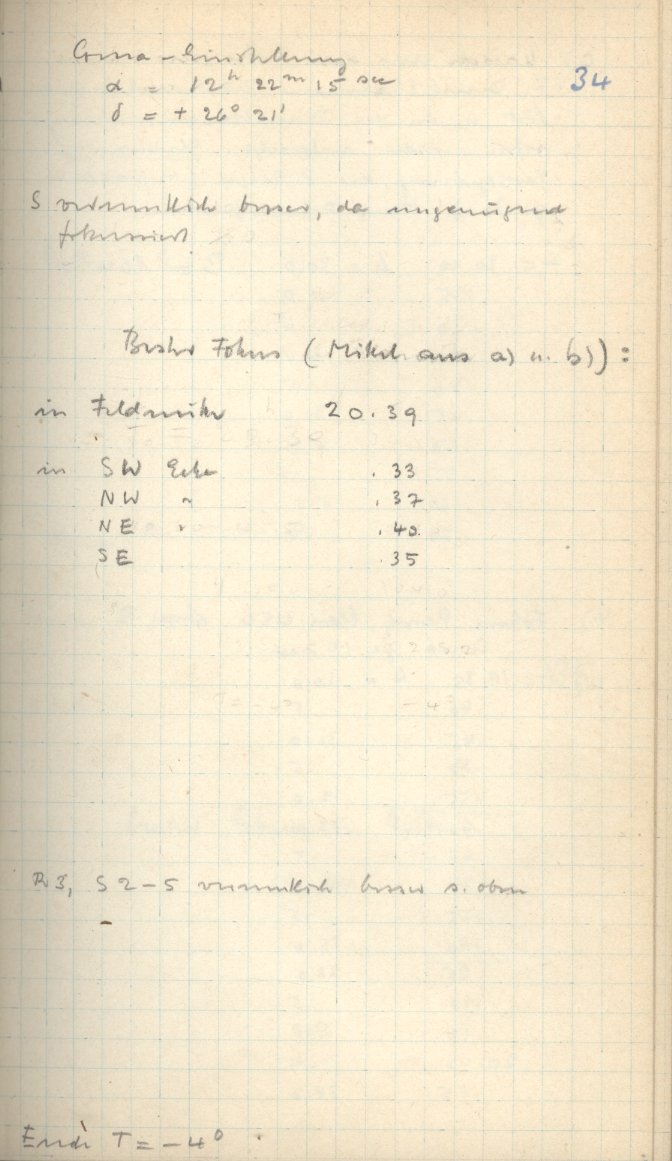 Coma-Einstellung
34
α = 12ʰ 22ᵐ 15 sec
δ = + 26° 21'
S vermutlich besser, da ungenügend
fokussiert
Bester Fokus (Mittel aus a) u. b)):
in Feldmitte 20.39
in SW Ecke .33
NW " .37
NE " .40
SE .35
R 3, S 2-5 vermutlich besser s. oben
Ende T = -4°